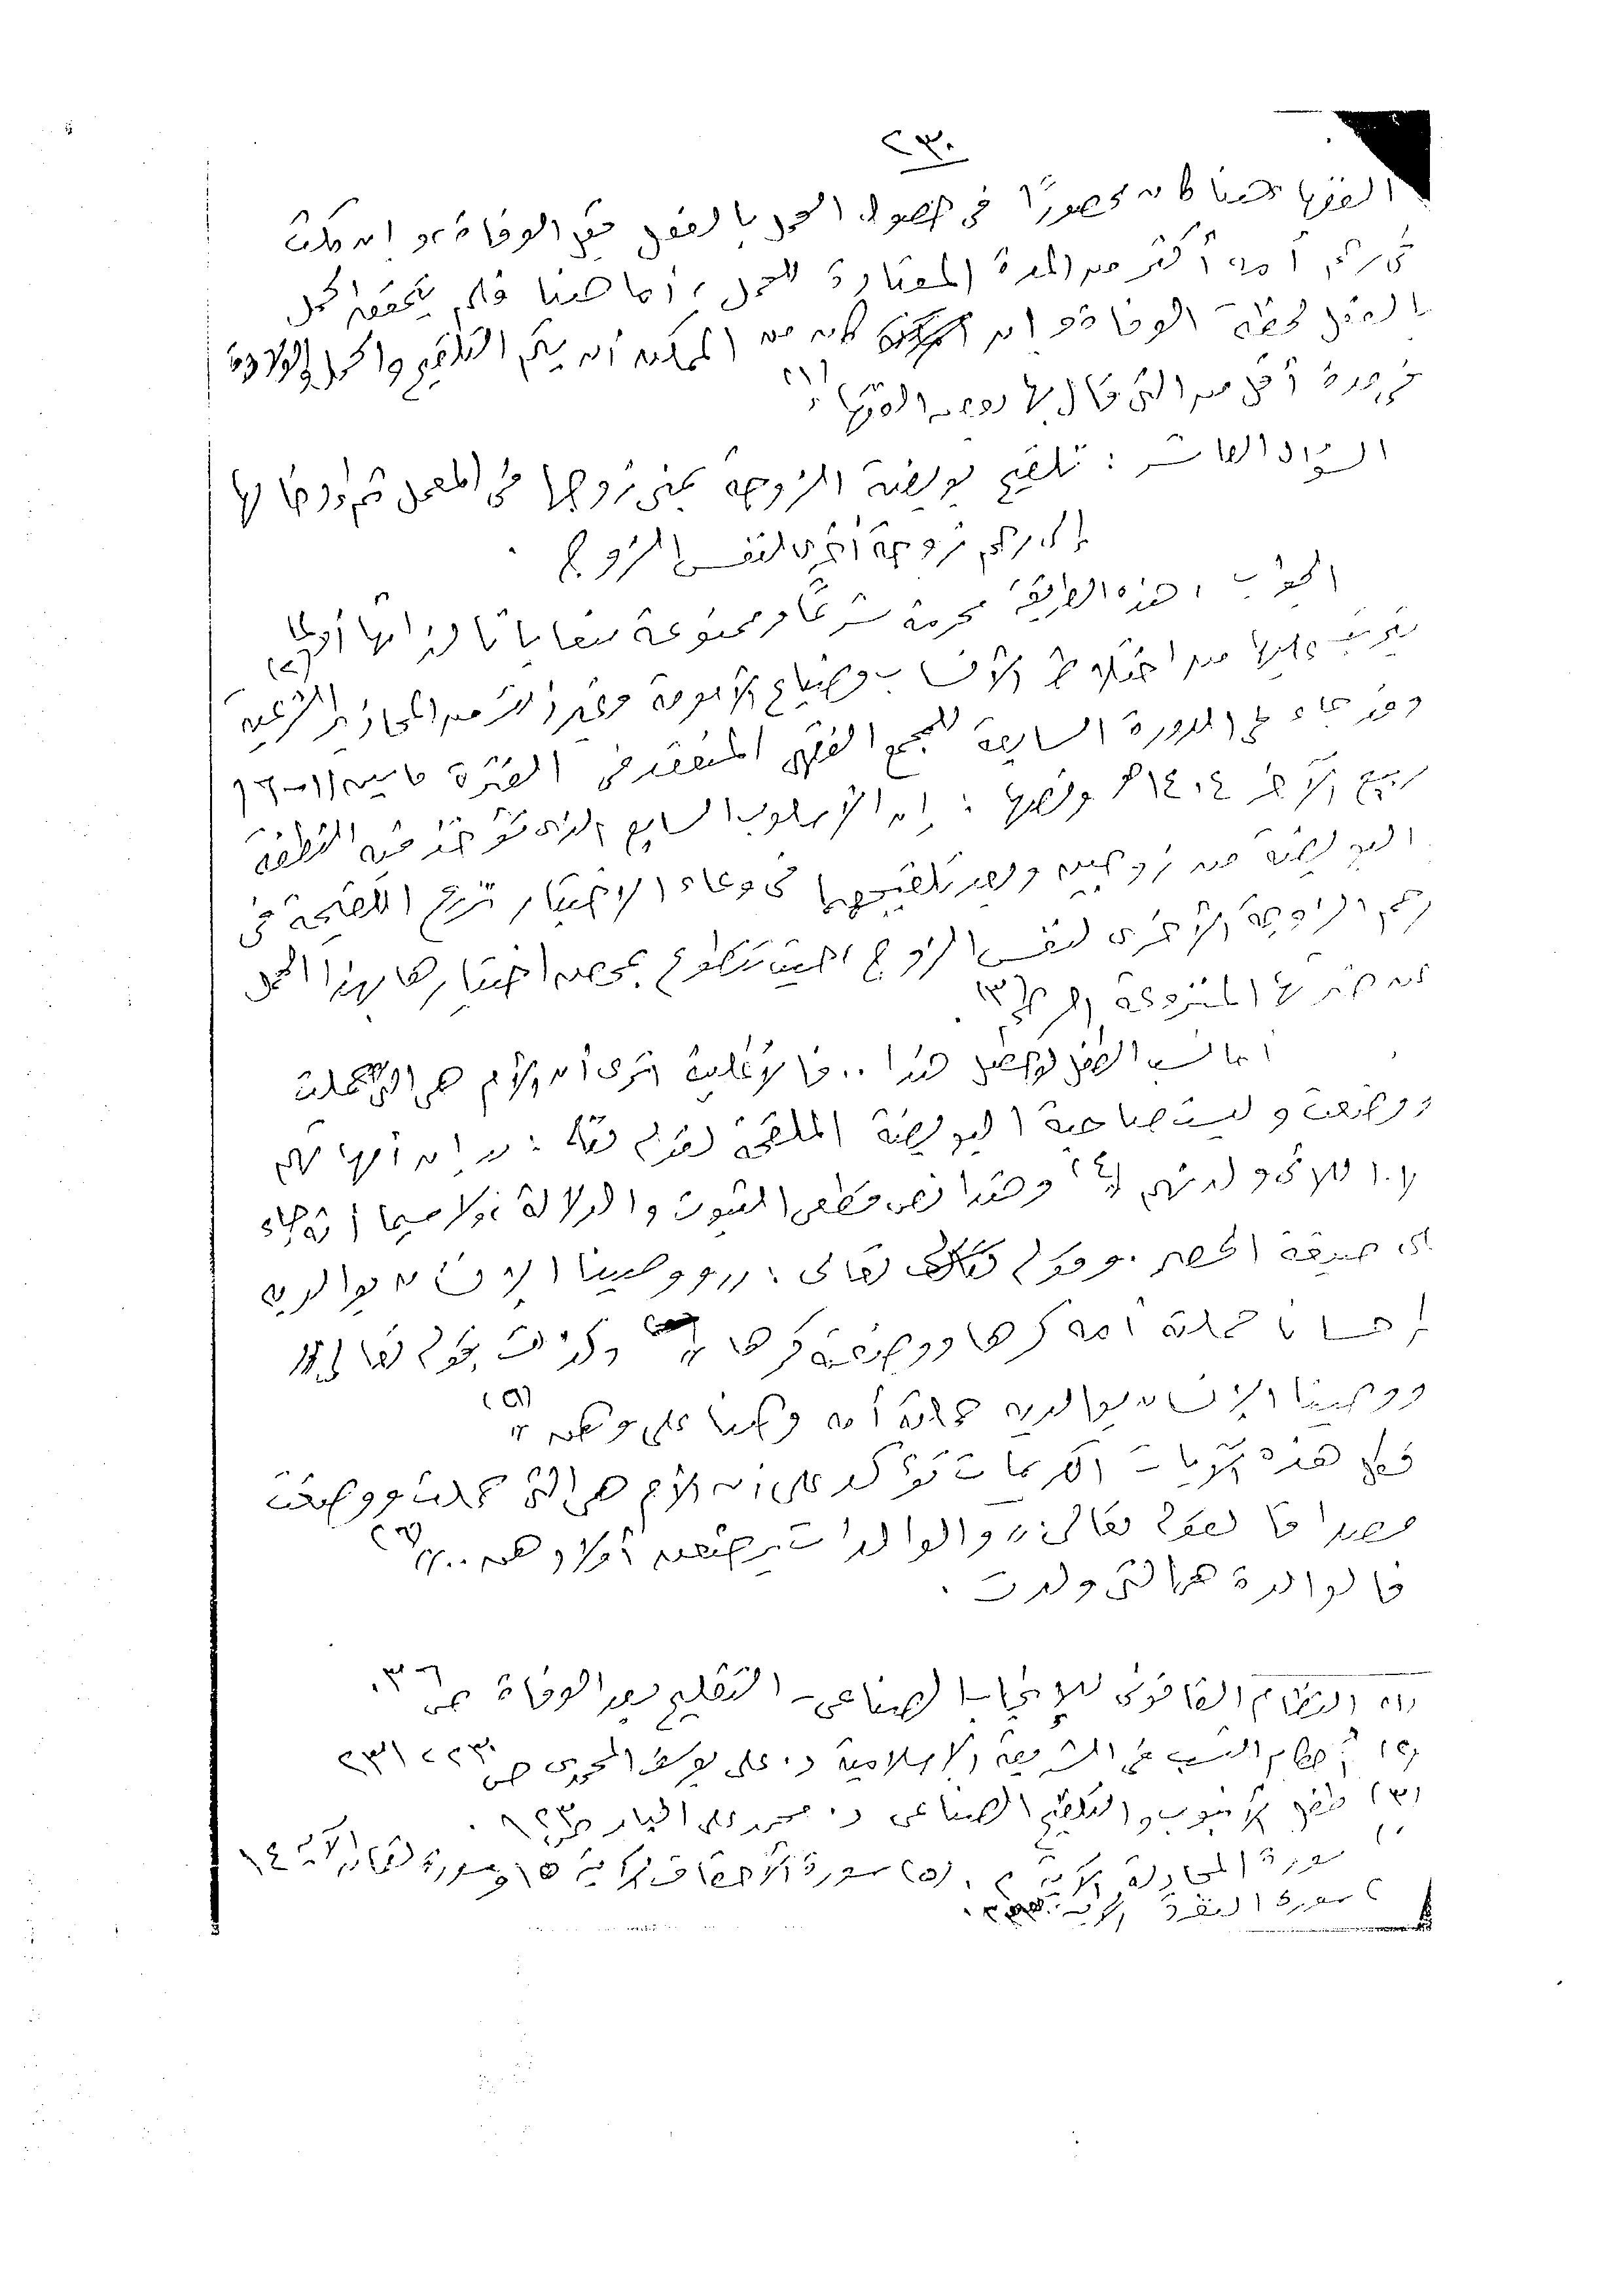 ٢٣٠
الفقهاء هنا كان محصورًا في حصول الحمل بالفعل قبل الوفاة، وإن مكث
في رحم أمه أكثر من المدة المعتادة للحمل، أما هنا فلم يتحقق الحمل
بالفعل لحظة الوفاة وإن كان من الممكن أن يتم التلقيح والحمل والولادة
في مدة أقل من التي قال بها بعض الفقهاء (١)
السؤال العاشر : تلقيح بويضة الزوجة بمنى زوجها في المعمل ثم إدخالها
إلى رحم زوجة أخرى لنفس الزوج .
الجواب : هذه الطريقة محرمة شرعًا وممنوعة منعا باتا لذاتها أو لما
يترتب عليها من اختلاط الأنساب وضياع الأمومة وغير ذلك من المحاذير الشرعية (٢)
وقد جاء في الدورة السابعة للمجمع الفقهي المنعقد في الفترة ما بين ١١-١٦
ربيع الآخر ١٤٠٤هـ ونصها : إن الأسلوب السابع الذي تؤخذ فيه النطفة
البويضة من زوجين وبعد تلقيحهما في وعاء الاختبار تزرع اللقيحة في
رحم الزوجة الأخرى لنفس الزوج حيث تتطوع بمحض اختيارها بهذا الحمل
عن ضرتها المنزوعة الرحم (٣) .
أما نسب الطفل لو حصل هذا .. فالأغلبية ترى أن الأم هي التي حملت
ووضعت وليست صاحبة البويضة الملقحة لقوله تعالى : " إن أمهاتهم
إلا اللائي ولدنهم " (٤) وهذا نص قطعي الثبوت والدلالة ولا سيما أنه جاء
على صيغة الحصر . وقوله تعالى : " ووصينا الإنسان بوالديه
إحسانا حملته أمه كرها ووضعته كرها " وكذلك بقوله تعالى "
ووصينا الإنسان بوالديه حملته أمه وهنا على وهن " (٥)
فكل هذه الآيات الكريمات تؤكد على أن الأم هي التي حملت ووضعت
مصداقا لقوله تعالى : " والوالدات يرضعن أولادهن .. " (٦)
فالوالدة هي التي ولدت .
(١) النظام القانوني للإنجاب الصناعي - التلقيح بعد الوفاة ص ٣٠٦
(٢) أحكام النسب في الشريعة الإسلامية د. علي يوسف المحمدي ص ٢٣٠، ٢٣١
(٣) طفل الأنبوب والتلقيح الصناعي د. محمد علي البار ص
سورة المجادلة الآية ٢ . (٥) سورة الأحقاف الآية ١٥ وسورة لقمان الآية ١٤
سورة البقرة الآية ٢٣٣ .